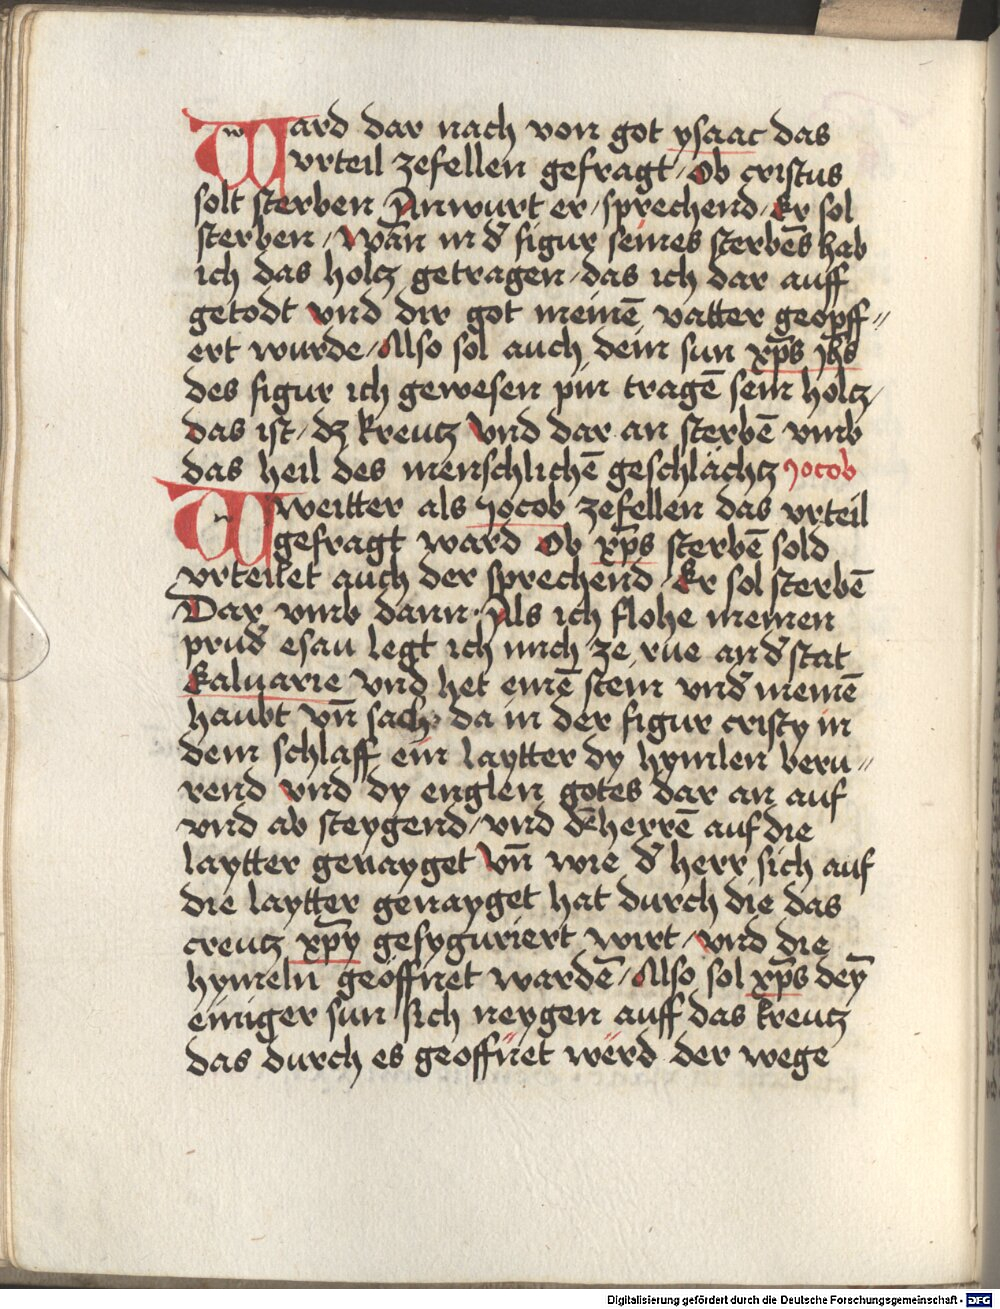 Ward dar nach von got ysaac das
vrteil zefellen gefragt / Ob cristus
solt sterben Antwurt er / sprechend / Er sol
sterben / Wān in d̄ figur seines sterbēs hab
ich das holtz getragen / das ich dar auff
getodt vnd dir got meinē vatter geopff〃
ert wurde / Also sol auch dein sun xp̄s jh̄s
des figur ich gewesen pin tragē sein holtz /
das ist / dz kreutz Vnd dar an sterbē vmb
das heil des menschlichē geschlächtz Jocob
Weitter als Jocob zefellen das vrteil
gefragt ward Ob xp̄s sterbē sold
vrteilet auch der sprechend / Er sol sterbē
Dar vmb dann / Als ich flohe meinen
prud̄ esau legt ich mich ze rue an d̄ stat
Kaluarie vnd het einē stein vnd̄ meinē
haubt vn̄ sach da in der figur cristy in
dem schlaff ein laytter dy hymlen beru〃
rend vnd dy englen gotes dar an auf
vnd ab steygend / vnd dē herrē auf die
laytter genayget Vn̄ wie d̄ herr sich auf
die laytter genayget hat durch die das
creutz xp̄y gefyguriert wirt / vnd die
hymeln geöffnet wardē / Also sol xp̄s dey̅
einiger sun sich neygen auff das kreutz
das durch es geoffnet werd der wege
Digitalisierung gefördert durch die Deutsche Forschungsgemeinschaft - DFG